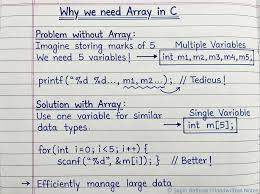 Why we need Array in C
Problem without Array:
Imagine storing marks of 5.
We need 5 variables! → int m1,m2,m3,m4,m5;
Multiple Variables
printf("%d %d…, m1, m2…); // Tedious!
Solution with Array:
Use one variable for similar
data types. → int m[5];
Single Variable
for(int i=0; i<5; i++) {
scanf("%d", &m[i]); } // Better!
→ Efficiently manage large data
Handwritten Notes